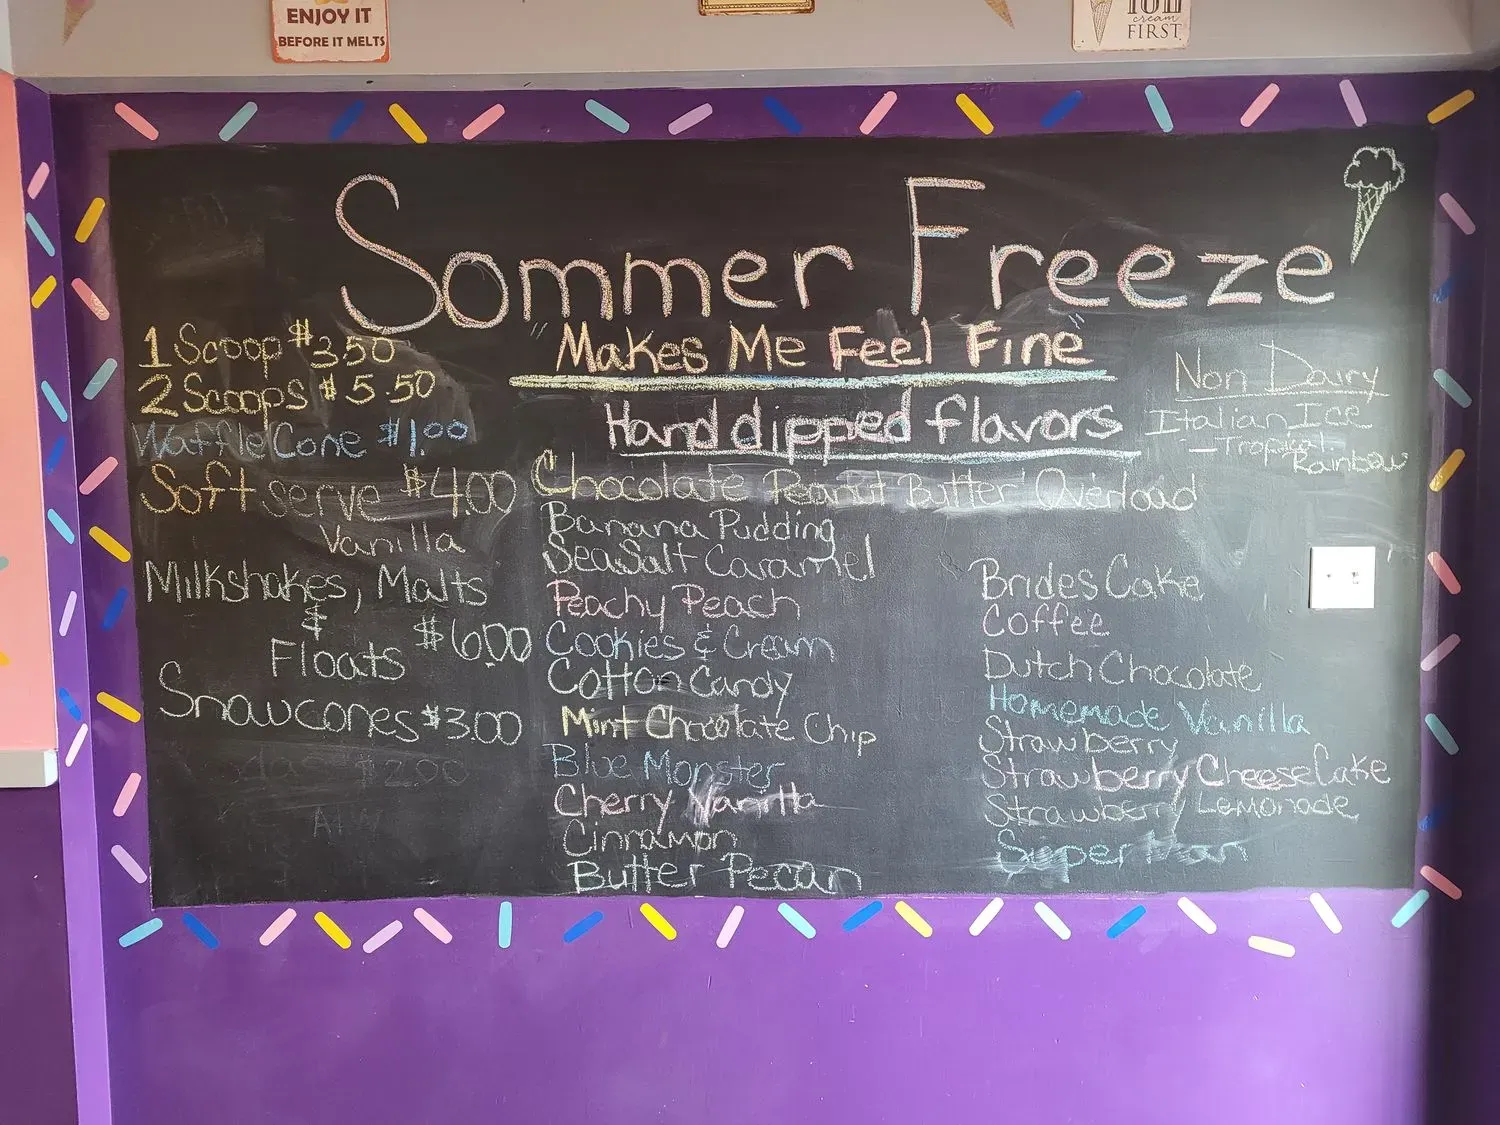 ENJOY IT
BEFORE IT MELTS
cream
FIRST
Sommer Freeze
"Makes Me Feel Fine"
1 Scoop $3.50
2 Scoops $5.50
Waffle Cone $1.00
Soft serve $4.00
Vanilla
Milkshakes, Malts
&
Floats $6.00
Snowcones $3.00
$2.00
Hand dipped flavors
Chocolate Peanut Butter Overload
Banana Pudding
Sea Salt Caramel
Peachy Peach
Cookies & Cream
Cotton Candy
Mint Chocolate Chip
Blue Monster
Cherry Vanilla
Cinnamon
Butter Pecan
Non Dairy
Italian Ice
- Tropical
Rainbow
Brides Cake
Coffee
Dutch Chocolate
Homemade Vanilla
Strawberry
Strawberry CheeseCake
Strawberry Lemonade
Super Man